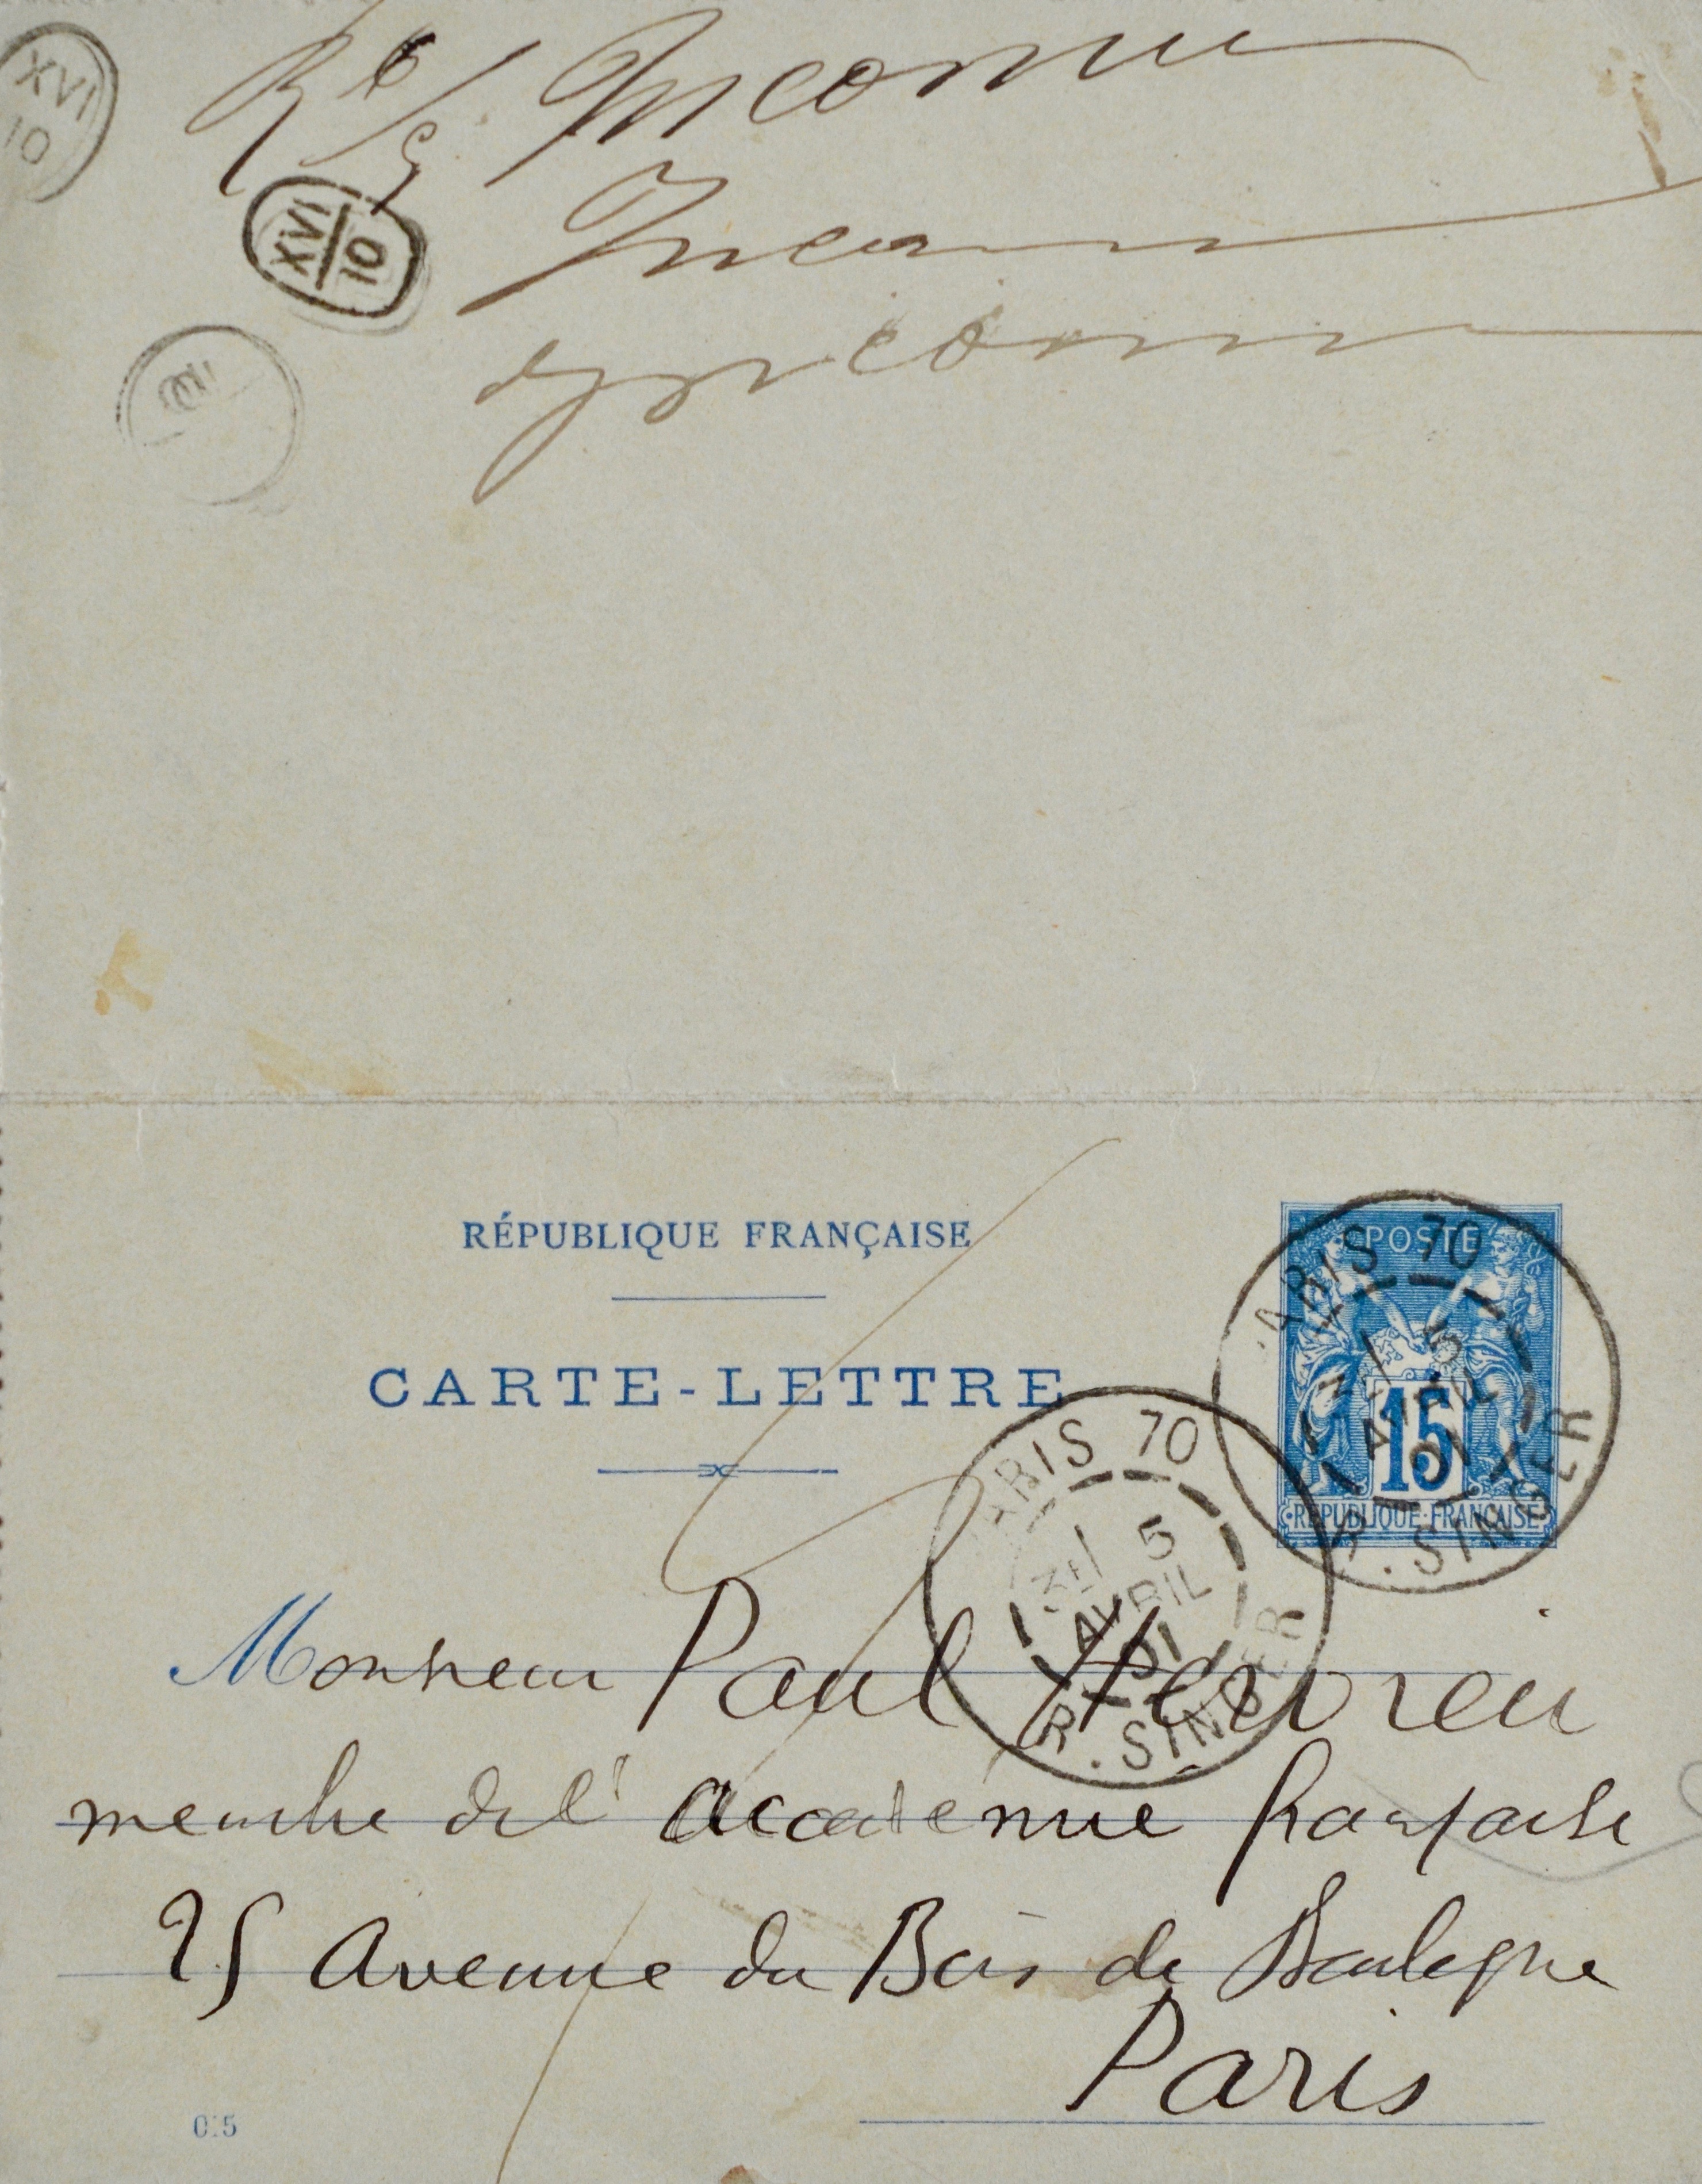 XVI
10
Inconnu
XVI
10
Inconnu
Inconnu
RÉPUBLIQUE FRANÇAISE
CARTE-LETTRE
POSTE
15
RÉPUBLIQUE FRANÇAISE
PARIS 70
5
AVRIL
01
R. SINGER
PARIS 70
3E/ 5
AVRIL
01
R. SINGER
Monsieur Paul Hervieu
membre de l'académie française
25 Avenue du Bois de Boulogne
Paris